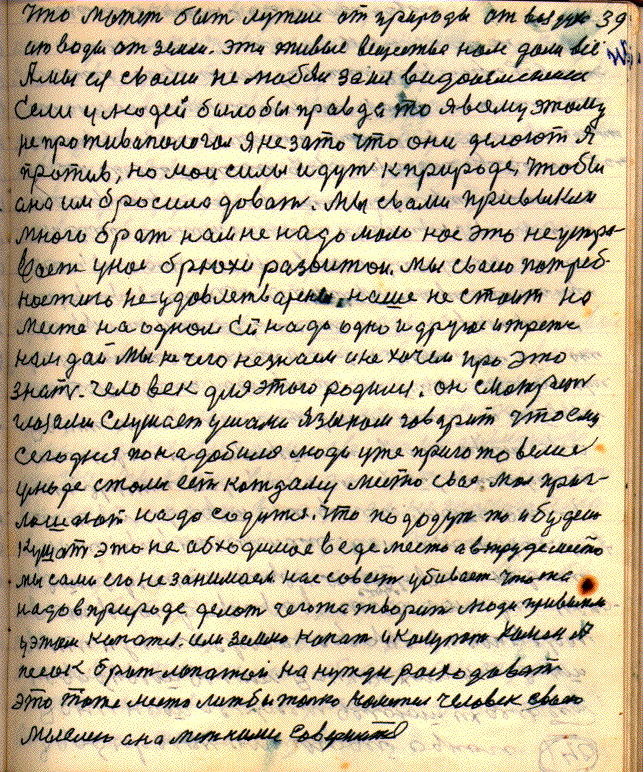 Что может быт лутше от природы от воздуха 39
от воды от земли. эти живые вещества нам дали всё
А мы их своим не любви за
Если у людей было бы правда то я всему этому
не противаполога Я не зато что они делают Я
против, но мои силы идут к природе, чтобы
ана им бросила доват. Мы с вами привыкли
много брат нам не надо мало нас это не устра-
вает у нас брюхи развитои. мы свою потреб-
ностию не удовлетварены наше не стоит на
месте на одном ей надо одно и другое и трете
нам дай Мы не чего не знаем и не хочем про это
знат. человек для этого родился. он смотрит
глазами слушает ушами языком говорит что ему
сегодня понадобился люди уже приготовелис
у люде столы ест каждому место свае. мол приг-
лашают надо садится. что пододут то и будем
кушат это не абходимое веде место а втруде место
мы сами его не занимаем нас совест убивает что та
надо в природе делат чегота творит люди привыкли
у этом капатся. или землю капат и камен А
песок брат лопатой на нужди расходоват
это тоже место лижбы толко человек своею
мыслею ана